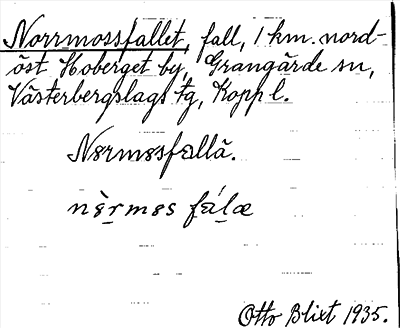 Norrmossfallet, fall, 1 km. nord-
öst Hoberget by, Grangärde sn,
Västerbergslags tg, Kopp l.
Nørmøsfallä.
nèrmøs fálæ
Otto Blixt 1935.